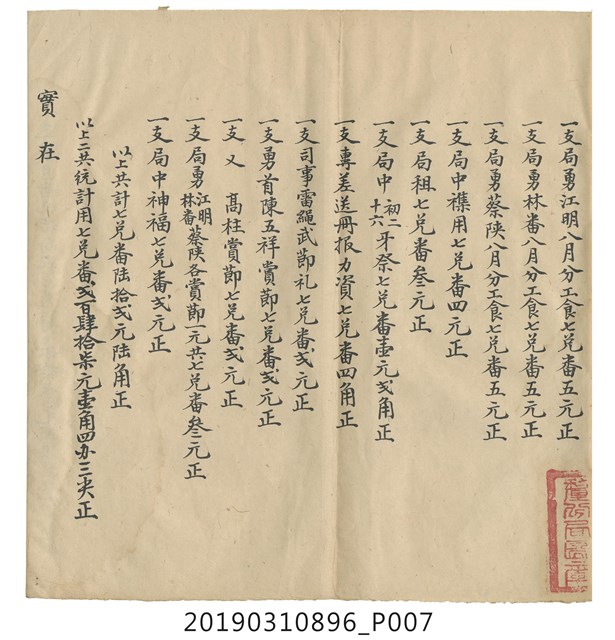 一支局勇江明八月分工食七兑番五元正
一支局勇林番八月分工食七兑番五元正
一支局勇蔡陕八月分工食七兑番五元正
一支局中襍用七兑番四元正
一支局租七兑番叁元正
一支局中初二十六牙祭七兑番壹元弍角正
一支專差送冊报力資七兑番四角正
一支司事雷繩武節礼七兑番弍元正
一支勇首陳五祥賞節七兑番弍元正
一支又 高柱賞節七兑番弍元正
一支局勇江明林番蔡陕各賞節一元共七兑番叁元正
一支局中神福七兑番弍元正
以上共計七兑番陸拾弍元陸角正
以上二共統計用七兑番弍百肆拾柒元壹角四办三尖正
實在
20190310896_P007